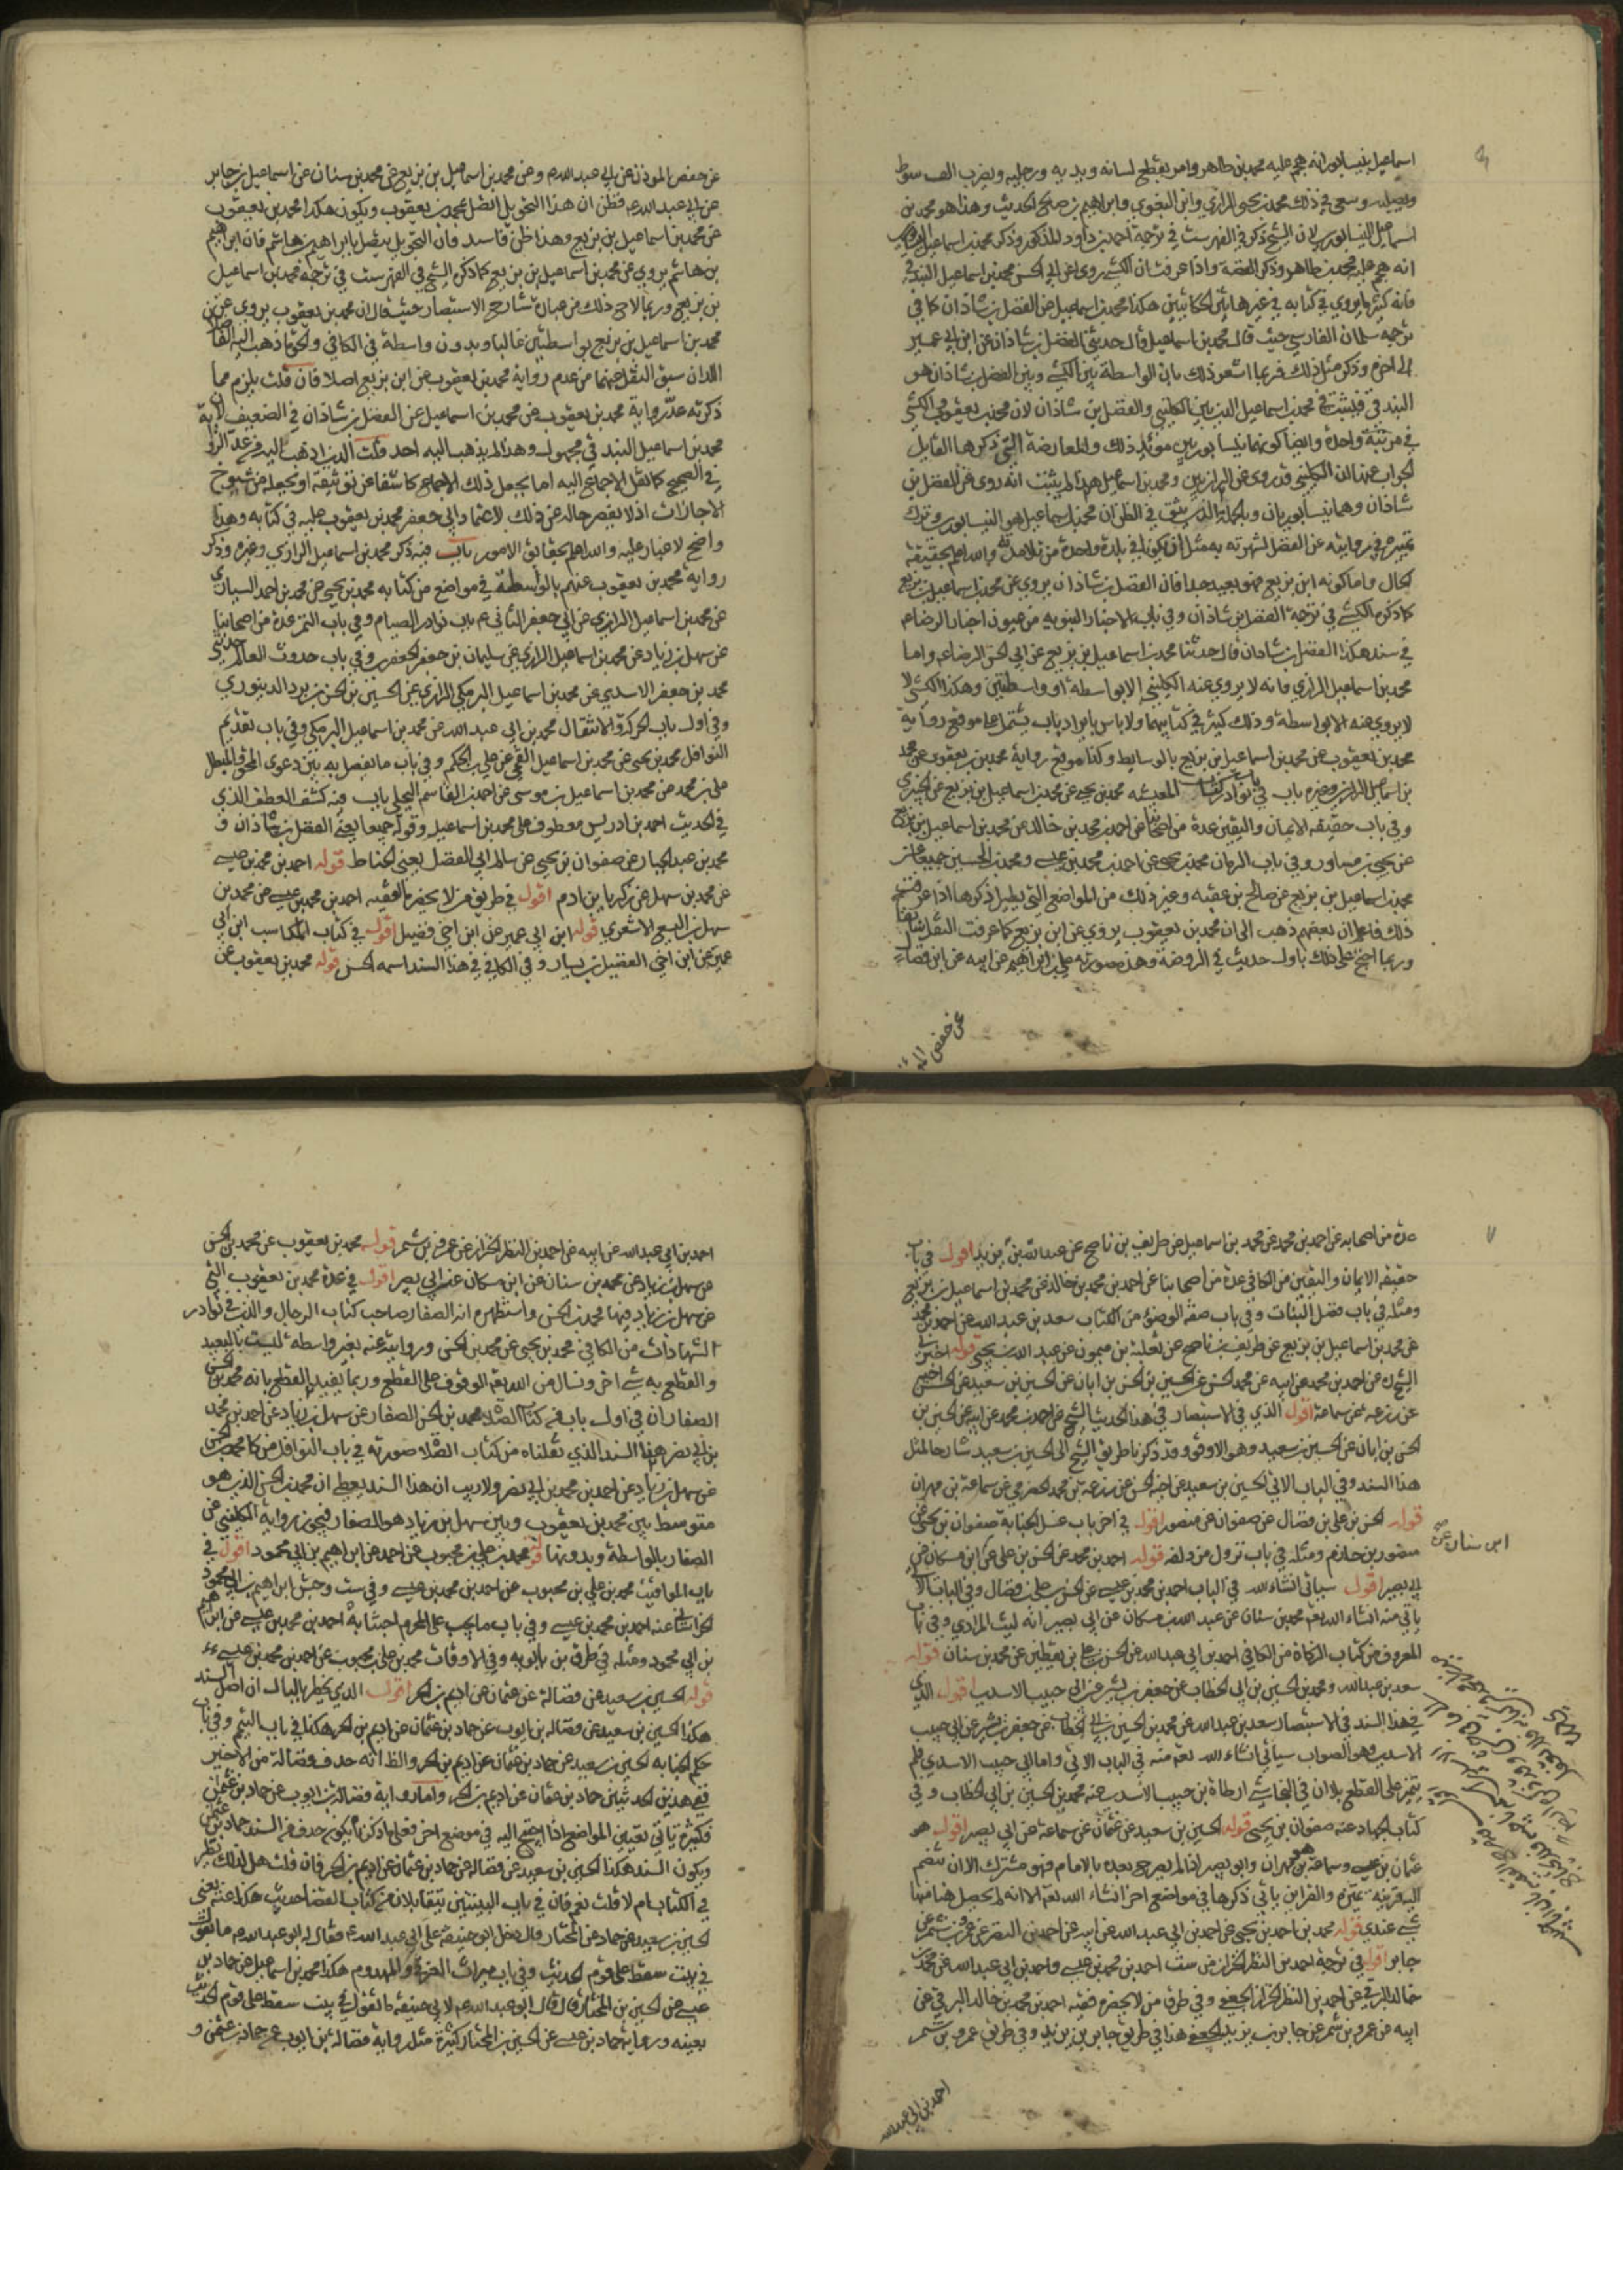 اسماعيل بنيسابور انه هجم عليه محمد بن طاهر وامر بقطع لسانه ويديه ورجليه وبضرب الف سوط
وبصلبه وسعى في ذلك محمد بن يحيى الرازي وابن البغوي وابراهيم بن صالح الحديث وهذا هو محمد بن
اسماعيل النيسابوري لان الشيخ ذكر في الفهرست في ترجمة احمد بن داود المذكور وذكر محمد بن اسماعيل
انه هجم عليه محمد بن طاهر وذكر القصة واذا عرفت ان الكشي روى عن ابي الحسن محمد بن اسماعيل البندقي
فانه كثيرا يروي في كتابه في غير هاتين الحكايتين هكذا محمد بن اسماعيل عن الفضل بن شاذان كما في
ترجمة سلمان الفارسي حيث قال محمد بن اسماعيل قال حدثني الفضل بن شاذان عن ابن ابي عمير
الى اخره وذكر مثل ذلك فربما اشعر ذلك بان الواسطة بين الكشي وبين الفضل بن شاذان هو
البندقي فليثبت في محمد بن اسماعيل الذي بين الكليني والفضل بن شاذان لان محمد بن يعقوب والكشي
في مرتبة واحدة وايضا كونهما نيسابوريين مؤيد ذلك والمعارضة التي ذكرها القايل
لجواب عنها ان الكليني قد روى عن الرازيين ومحمد بن اسماعيل هذا لم يثبت انه روى عن الفضل بن
شاذان وهما نيسابوريان وبالجملة الذي يثق في الظن ان محمد بن اسماعيل هو النيسابوري وترك
تمييزه في روايته عن الفضل لشهرته به مثل ان يكونا في بلدة واحدة من تلامذته والله اعلم بحقيقة
الحال واما كونه ابن بزيع فهو بعيد جدا فان الفضل بن شاذان يروي عن محمد بن اسماعيل بن بزيع
كما ذكره الكشي في ترجمة الفضل بن شاذان وفي باب الاخبار النبوية من عيون اخبار الرضا ع
في سند هكذا الفضل بن شاذان قال حدثنا محمد بن اسماعيل بن بزيع عن ابي الحسن الرضا ع واما
محمد بن اسماعيل الرازي فانه لا يروي عنه الكليني الا بواسطة او واسطتين وهكذا الكشي لا
لا يروي عنه الا بواسطة وذلك كثير في كتابيهما ولا باس بايراد باب يشتمل على موقع رواية
محمد بن يعقوب عن محمد بن اسماعيل بن بزيع بالوسايط وكذا موقع رواية محمد بن يعقوب عن محمد
بن اسماعيل الرازي وغيره باب في نوادر كتاب المعيشة محمد بن يحيى عن محمد بن اسماعيل بن بزيع عن الخيبري
وفي باب حقيقة الايمان واليقين عدة من اصحابنا عن احمد بن محمد بن خالد عن محمد بن اسماعيل بن بزيع
عن يحيى بن مساور وفي باب الرمان محمد بن يحيى عن احمد بن محمد بن عيسى ومحمد بن الحسين جميعا عن
محمد بن اسماعيل بن بزيع عن صالح بن عقبة وغير ذلك من المواضع التي يطيل ذكرها اذا عرفت
ذلك فاعلم ان بعضهم ذهب الى ان محمد بن يعقوب يروي عن ابن بزيع كما عرفت النقل سابقا
وربما احتج على ذلك باول حديث في الروضة وهذه صورته علي بن ابراهيم عن ابيه عن ابن فضال
عن حفص المؤذن
عن حفص المؤذن عن ابي عبد الله ع وعن محمد بن اسماعيل بن بزيع عن محمد بن سنان عن اسماعيل بن جابر
عن ابي عبد الله ع فظن ان هذا التحويل اتصل بمحمد بن يعقوب ويكون هكذا محمد بن يعقوب
عن محمد بن اسماعيل بن بزيع وهذا ظن فاسد فان التحويل يتصل بابراهيم بن هاشم فان ابراهيم
بن هاشم يروي عن محمد بن اسماعيل بن بزيع كما ذكره الشيخ في الفهرست في ترجمة محمد بن اسماعيل
بن بزيع وربما لاح ذلك من عبارة شارح الاستبصار حيث قال ان محمد بن يعقوب يروي عن
محمد بن اسماعيل بن بزيع بواسطتين غالبا وبدون واسطة في الكافي والحق ما ذهب اليه الفاضلان
اللذان سبق النقل عنهما من عدم رواية محمد بن يعقوب عن ابن بزيع اصلا فان قلت يلزم مما
ذكرته عدّ رواية محمد بن يعقوب عن محمد بن اسماعيل عن الفضل بن شاذان في الضعيف لانه
محمد بن اسماعيل البندقي مجهول وهذا لم يذهب اليه احد قلت الذي اذهب اليه عد
في الصحيح كما نقل الاجماع اليه اما بجعل ذلك الاجماع كاشفا عن توثيقه او بجعله من شيوخ
الاجازات اذ لا يضر حاله عن ذلك لاعتماد ابي جعفر محمد بن يعقوب عليه في كتابه وهذا
واضح لا غبار عليه والله اعلم بحقايق الامور باب فيه ذكر محمد بن اسماعيل الرازي وغيره وذكر
رواية محمد بن يعقوب عنهم بالواسطة في مواضع من كتابه محمد بن يحيى عن محمد بن احمد السياري
عن محمد بن اسماعيل الرازي عن ابي جعفر الثاني ع م باب نوادر الصيام وفي باب التمر عدة من اصحابنا
عن سهل بن زياد عن محمد بن اسماعيل الرازي عن سليمان بن جعفر الجعفري وفي باب حدوث العالم حدثني
محمد بن جعفر الاسدي عن محمد بن اسماعيل البرمكي الرازي عن الحسين بن الحسن بن برد الدينوري
وفي اول باب الحركة والانتقال محمد بن ابي عبد الله عن محمد بن اسماعيل البرمكي وفي باب تقديم
النوافل محمد بن يحيى عن محمد بن اسماعيل القمي عن علي بن الحكم وفي باب ما يفصل به بين دعوى المحق والمبطل
علي بن محمد عن محمد بن اسماعيل بن موسى عن احمد بن القاسم البجلي باب فيه كشف العطف الذي
في الحديث احمد بن ادريس معطوف على محمد بن اسماعيل وقوله جميعا يعني الفضل بن شاذان و
محمد بن عبد الجبار عن صفوان بن يحيى عن سالم ابي الفضل يعني الحناط قوله احمد بن محمد بن عيسى
عن محمد بن سهل عن زكريا بن ادم اقول في طريق من لا يحضره الفقيه احمد بن محمد بن عيسى عن محمد بن
سهل بن اليسع الاشعري قوله ابن ابي عمير عن ابن اخي فضيل اقول في كتاب المكاسب ابن ابي
عمير عن ابن اخي الفضيل بن يسار وفي الكافي في هذا السند اسمه الحسن قوله محمد بن يعقوب عن
٧
عدة من اصحابه عن احمد بن محمد عن محمد بن اسماعيل عن طريف بن ناصح عن عبد الله بن يزيد اقول في باب
حقيقة الايمان واليقين من الكافي عدة من اصحابنا عن احمد بن محمد بن خالد عن محمد بن اسماعيل بن بزيع
ومثله في باب فضل البنات وفي باب صفة الوضوء من الكتاب سعد بن عبد الله عن احمد بن محمد
عن محمد بن اسماعيل بن بزيع عن طريف بن ناصح عن ثعلبة بن ميمون عن عبد الله بن يحيى قوله اخبرني
الشيخ ره عن احمد بن محمد عن ابيه عن محمد الحسن عن الحسين بن الحسن بن ابان عن الحسين بن سعيد عن الحسن اخيه
عن زرعة عن سماعة اقول الذي في الاستبصار في هذا الحديث الشيخ عن احمد بن محمد عن ابيه عن الحسين بن
الحسن بن ابان عن الحسين بن سعيد وهو الاوفق وقد ذكرنا طريق الشيخ الى الحسين بن سعيد شارحا لمثل
هذا السند وفي الباب الاتي الحسين بن سعيد عن اخيه الحسن عن زرعة بن محمد الحضرمي عن سماعة بن مهران
قوله الحسن بن علي بن فضال عن صفوان عن منصور اقول في اخر باب غسل الجنابة صفوان بن يحيى عن
منصور بن حازم ومثله في باب نزول مزدلفة قوله احمد بن محمد عن الحسن بن علي عن ابن مسكان عن
ابن سنان عن صح
ابي بصير اقول سياتي انشاء الله في الباب احمد بن محمد بن عيسى عن الحسن بن علي بن فضال وفي الباب
ياتي منه انشاء الله تع محمد بن سنان عن عبد الله بن مسكان عن ابي بصير انه ليث المرادي وفي باب
المعروف من كتاب الزكاة من الكافي احمد بن ابي عبد الله عن الحسن بن علي بن يقطين عن محمد بن سنان قوله
سعد بن عبد الله ومحمد بن الحسين بن ابي الخطاب عن جعفر بن بشير عن ابي حبيب الاسدي اقول الذي
في هذا السند في الاستبصار سعد بن عبد الله عن محمد بن الحسين بن ابي الخطاب عن جعفر بن بشير عن ابي حبيب
الاسدي وهو الصواب سياتي انشاء الله تع منه في الباب الاتي واما ابي حبيب الاسدي فلم
يتميز على القطع بلا ان في النجاشي ارطاة بن حبيب الاسدي عنه محمد بن الحسين بن ابي الخطاب وفي
كتاب الجهاد عنه صفوان بن يحيى قوله الحسين بن سعيد عن عثمان عن سماعة عن ابي بصير اقول هو
عثمان بن عيسى وسماعة هو بن مهران وابو بصير اذا لم يصرح بعده بالامام فهو مشترك الا ان تنضم
اليه قرينة تميزه والقراين ياتي ذكرها في مواضع اخر انشاء الله تع الا انه لم يحصل هنا منها
شي عندي قوله محمد بن احمد بن يحيى عن احمد بن ابي عبد الله عن ابيه عن احمد بن النضر عن عمرو بن شمر عن
جابر اقول في ترجمة احمد بن النضر الخزاز من ست احمد بن محمد بن عيسى واحمد بن ابي عبد الله عن محمد بن
خالد البرقي عن احمد بن النضر الخزاز الجعفي وفي طرق من لا يحضره فقيه احمد بن محمد بن خالد البرقي عن
ابيه عن عمرو بن شمر عن جابر بن يزيد الجعفي هذا في طريق جابر بن يزيد وفي طريق عمرو بن شمر
احمد بن ابي عبد الله
احمد بن ابي عبد الله عن ابيه عن احمد بن النضر الخزاز عن عمرو بن شمر قوله محمد بن يعقوب عن محمد بن الحسن
عن سهل بن زياد عن محمد بن سنان عن ابن مسكان عن ابي بصير اقول في عدة محمد بن يعقوب التي
عن سهل بن زياد فيها محمد بن الحسن واستظهر م انه الصفار صاحب كتاب الرجال والذي في نوادر
الشهادات من الكافي محمد بن يحيى عن محمد بن الحسن وروايته عنه بغير واسطة ليست بالبعيد
والقطع به شي اخر ونسال من الله تع الوقوف على القطع وربما يفيد القطع بانه محمد بن الحسن
الصفار ان في اول باب في كتاب الصلاة محمد بن الحسن الصفار عن سهل بن زياد عن احمد بن محمد
بن ابي نصر وهذا السند الذي نقلناه من كتاب الصلاة صورته في باب النوافل من كا محمد بن الحسن
عن سهل بن زياد عن احمد بن محمد بن ابي نصر ولا ريب ان هذا السند يعطي ان محمد بن الحسن الذي هو
متوسط بين محمد بن يعقوب وبين سهل بن زياد هو الصفار فيجوز رواية الكليني عن
الصفار بالواسطة وبدونها قوله محمد بن علي بن محبوب عن احمد عن ابراهيم بن ابي محمود اقول في
باب المواقيت محمد بن علي بن محبوب عن احمد بن محمد بن عيسى وفي ست وجش ابراهيم بن ابي محمود
الخراساني عنه احمد بن محمد بن عيسى وفي باب ما يجب على المحرم اجتنابه احمد بن محمد بن عيسى عن ابراهيم
بن ابي محمود ومثله في طرق بن بابويه وفي الاوقات محمد بن علي بن محبوب عن احمد بن محمد بن عيسى
قوله الحسين بن سعيد عن فضالة عن عثمان عن اديم بن الحر اقول الذي يخطر بالبال ان اصل السند
هكذا الحسين بن سعيد عن فضالة بن ايوب عن حماد بن عثمان عن اديم بن الحر هكذا في باب التيمم وفي باب
حكم الجنابة الحسين بن سعيد عن حماد بن عثمان عن اديم بن الحر والظ انه حذف فضالة من الاخير
ففي هذين الحديثين حماد بن عثمان عن اديم بن الحر واما رواية فضالة بن ايوب عن حماد بن عثمان
فكثيرة ياتي تعيين المواضع اذا احتيج اليه في موضع اخر فعلى ما ذكرناه يكون حذف في السند حماد بن عثمان
ويكون السند هكذا الحسين بن سعيد عن فضالة عن حماد بن عثمان عن اديم بن الحر فان قلت هل لذلك نظير
في الكتاب ام لا قلت نعم فان في باب البينتين يتقابلان من كتاب القضا حديث هكذا عنه يعني
الحسين بن سعيد عن حماد عن المختار قال دخل ابو حنيفة على ابي عبد الله ع فقال له ابو عبد الله ع ما تقول
في بيت سقط على قوم الحديث وفي باب ميراث الغرقى والمهدوم هكذا محمد بن اسماعيل عن حماد بن
عيسى عن الحسين بن المختار قال قال ابو عبد الله ع لابي حنيفة ما تقول في بيت سقط على قوم الحديث
بعينه ورواية حماد بن عيسى عن الحسين بن المختار كثيرة مثل رواية فضالة بن ايوب عن حماد بن عثمان و